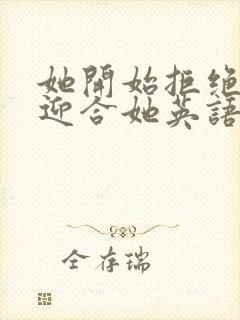 她開始拒絕
迎合她英語
全存瑞